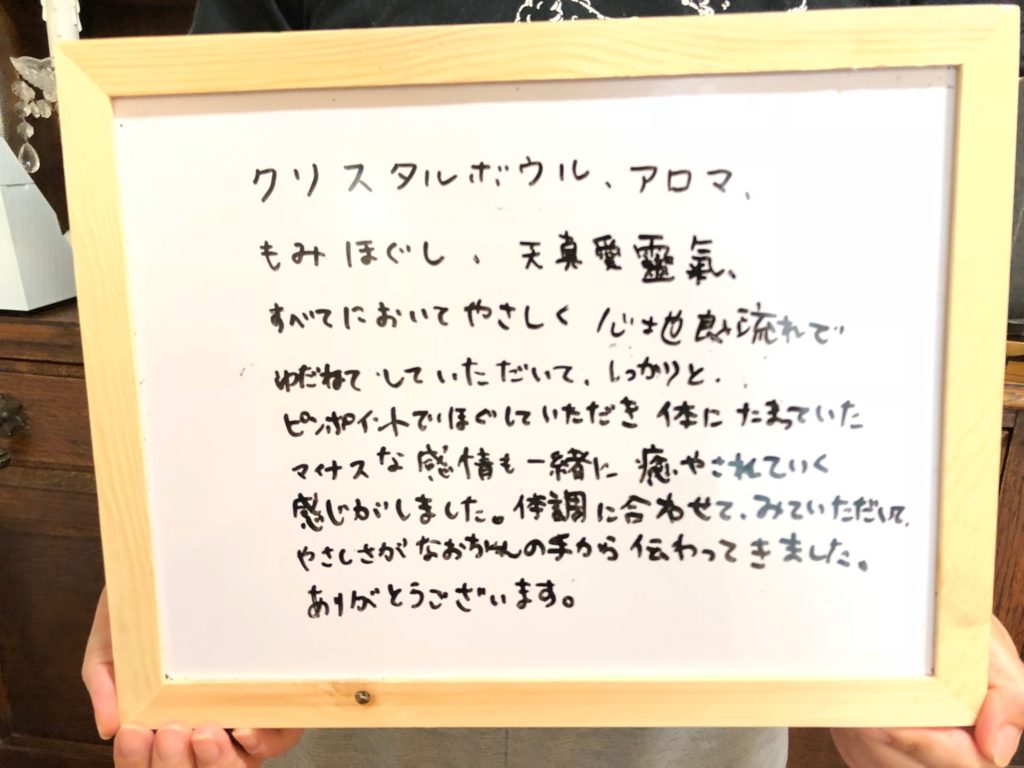 クリスタルボウル、アロマ、
もみほぐし、天真愛靈氣、
すべてにおいてやさしく心地良い流れで
ゆだねてしていただいて、しっかりと、
ピンポイントでほぐしていただき体にたまっていた
マイナスな感情も一緒に癒やされていく
感じがしました。体調に合わせて、みていただいて、
やさしさがなおちゃんの手から伝わってきました。
ありがとうございます。